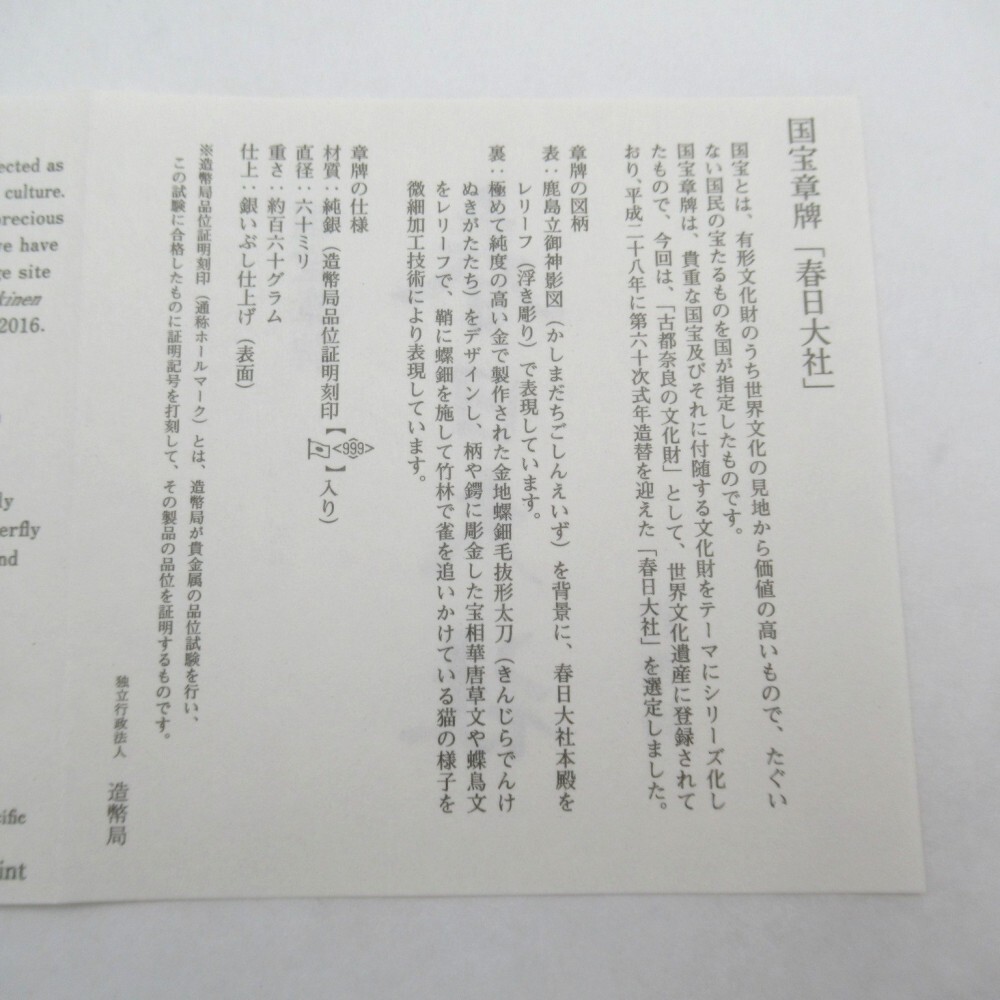 国宝章牌「春日大社」
国宝とは、有形文化財のうち世界文化の見地から価値の高いもので、たぐい
ない国民の宝たるものを国が指定したものです。
国宝章牌は、貴重な国宝及びそれに付随する文化財をテーマにシリーズ化し
たもので、今回は、「古都奈良の文化財」として、世界文化遺産に登録されて
おり、平成二十八年に第六十次式年造替を迎えた「春日大社」を選定しました。
章牌の図柄
表：鹿島立御神影図（かしまだちごしんえいず）を背景に、春日大社本殿を
レリーフ（浮き彫り）で表現しています。
裏：極めて純度の高い金で製作された金地螺鈿毛抜形太刀（きんじらでんけ
ぬきがたたち）をデザインし、柄や鍔に彫金した宝相華唐草文や蝶鳥文
をレリーフで、鞘に螺鈿を施して竹林で雀を追いかけている猫の様子を
微細加工技術により表現しています。
章牌の仕様
材質：純銀（造幣局品位証明刻印【<999>】入り）
直径：六十ミリ
重さ：約百六十グラム
仕上：銀いぶし仕上げ（表面）
※造幣局品位証明刻印（通称ホールマーク）とは、造幣局が貴金属の品位試験を行い、
この試験に合格したものに証明記号を打刻して、その製品の品位を証明するものです。
独立行政法人 造幣局
ected as
culture.
precious
ve have
ge site
kinen
2016.
ly
erfly
nd
cific
int